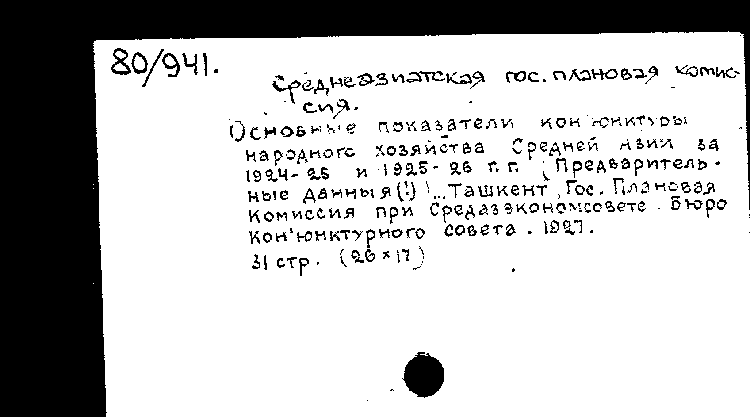 80/941.
Среднеазиатская гос. плановая комис-
сия.
Основные показатели кон'юнктуры
народного хозяйства Средней Азии за
1924-25 и 1925-26 г.г. (Предваритель-
ные данныя(!) ... Ташкент, Гос. Плановая
комиссия при Средазэкономсовете. Бюро
кон'юнктурного совета. 1927.
31 стр. (26×17)